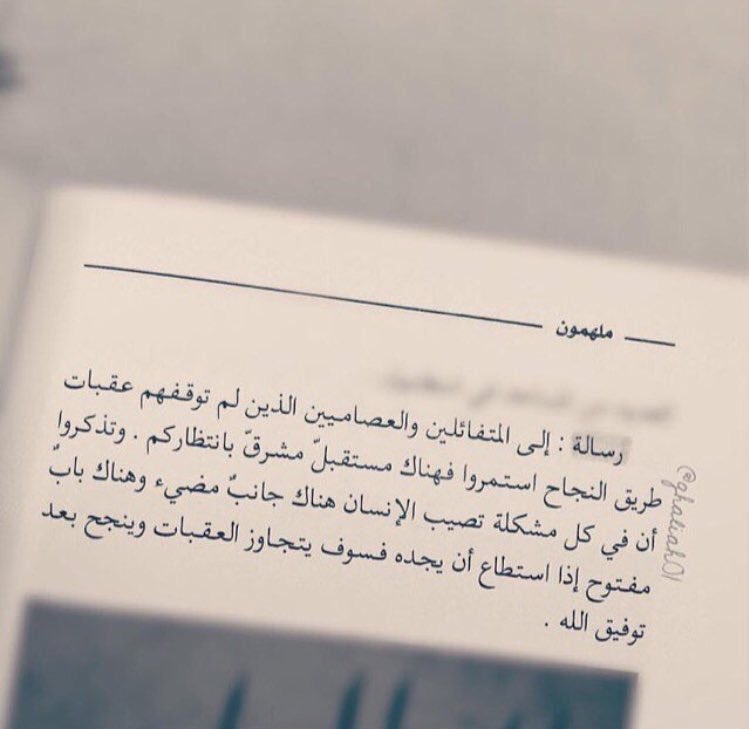 ملهمون
رسالة : إلى المتفائلين والعصاميين الذين لم توقفهم عقبات
طريق النجاح استمروا فهناك مستقبلٌ مشرقٌ بانتظاركم . وتذكروا
أن في كل مشكلة تصيب الإنسان هناك جانبٌ مضيء وهناك بابٌ
مفتوح إذا استطاع أن يجده فسوف يتجاوز العقبات وينجح بعد
توفيق الله .
@ghaliah01